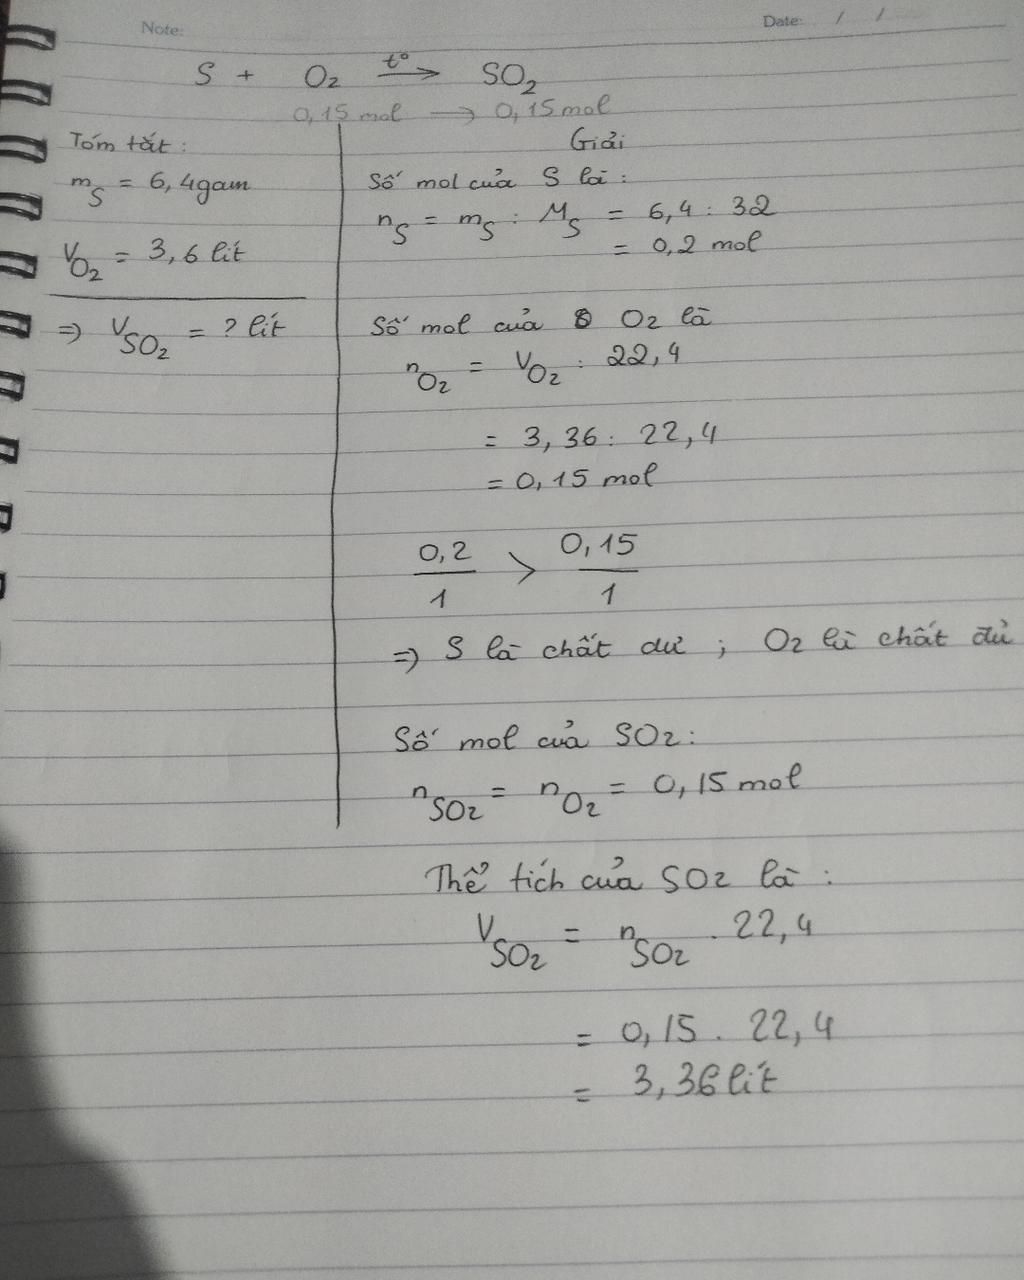 Note:
Date: / /
S + O₂ t° → SO₂
0,15 mol → 0,15 mol
Tóm tắt:
m_S = 6,4gam
V_O₂ = 3,6 lít
=> V_SO₂ = ? lít
Giải
Số mol của S là:
n_S = m_S : M_S = 6,4 : 32
= 0,2 mol
Số mol của O₂ là
n_O₂ = V_O₂ : 22,4
= 3,36 : 22,4
= 0,15 mol
0,2/1 > 0,15/1
=> S là chất dư ; O₂ là chất đủ
Số mol của SO₂:
n_SO₂ = n_O₂ = 0,15 mol
Thể tích của SO₂ là :
V_SO₂ = n_SO₂ . 22,4
= 0,15 . 22,4
= 3,36 lít